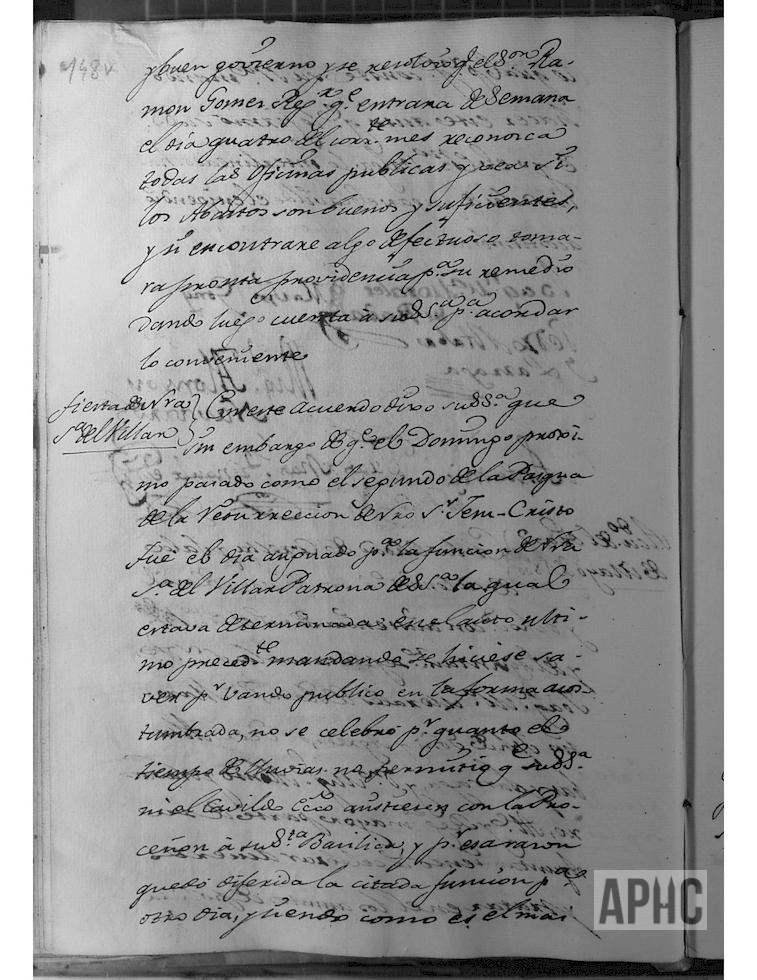 148v
y buen govierno y se resolvió q.e el S.or Ra-
mon Gomez Reg.r q.e entrara de Semana
el dia quatro del corr.te mes reconozca
todas las Oficinas publicas y vea si
los Abastos son buenos y suficientes,
y si encontrare algo defectuoso toma-
ra pronta providencia p.a su remedio
Dando luego cuenta à su S.a p.a acordar
lo conveniente
fiesta de Nra
S.a del Villar
En este acuerdo dixo su S.a que
sin embargo de q.e el Domingo proxi-
mo pasado como el segundo de la Pasqua
de la Resurreccion de Nro S.r Jesu-Cristo
fue el dia asignado p.a la funcion de Nra
S.a del Villar Patrona de S.a la qual
estava determinada en el auto ulti-
mo preced.te mandando se hiciese sa-
ver p.r vando publico en la forma acos-
tumbrada, no se celebró p.r quanto el
tiempo de lluvias no permitio q.e su S.a
ni el Cavildo Ecco asistiesen con la Pro-
cesion à su S.ta Basilica, y p.r esa razon
quedò diferida la citada funcion p.a
otro dia, y siendo como es el mas
APHC